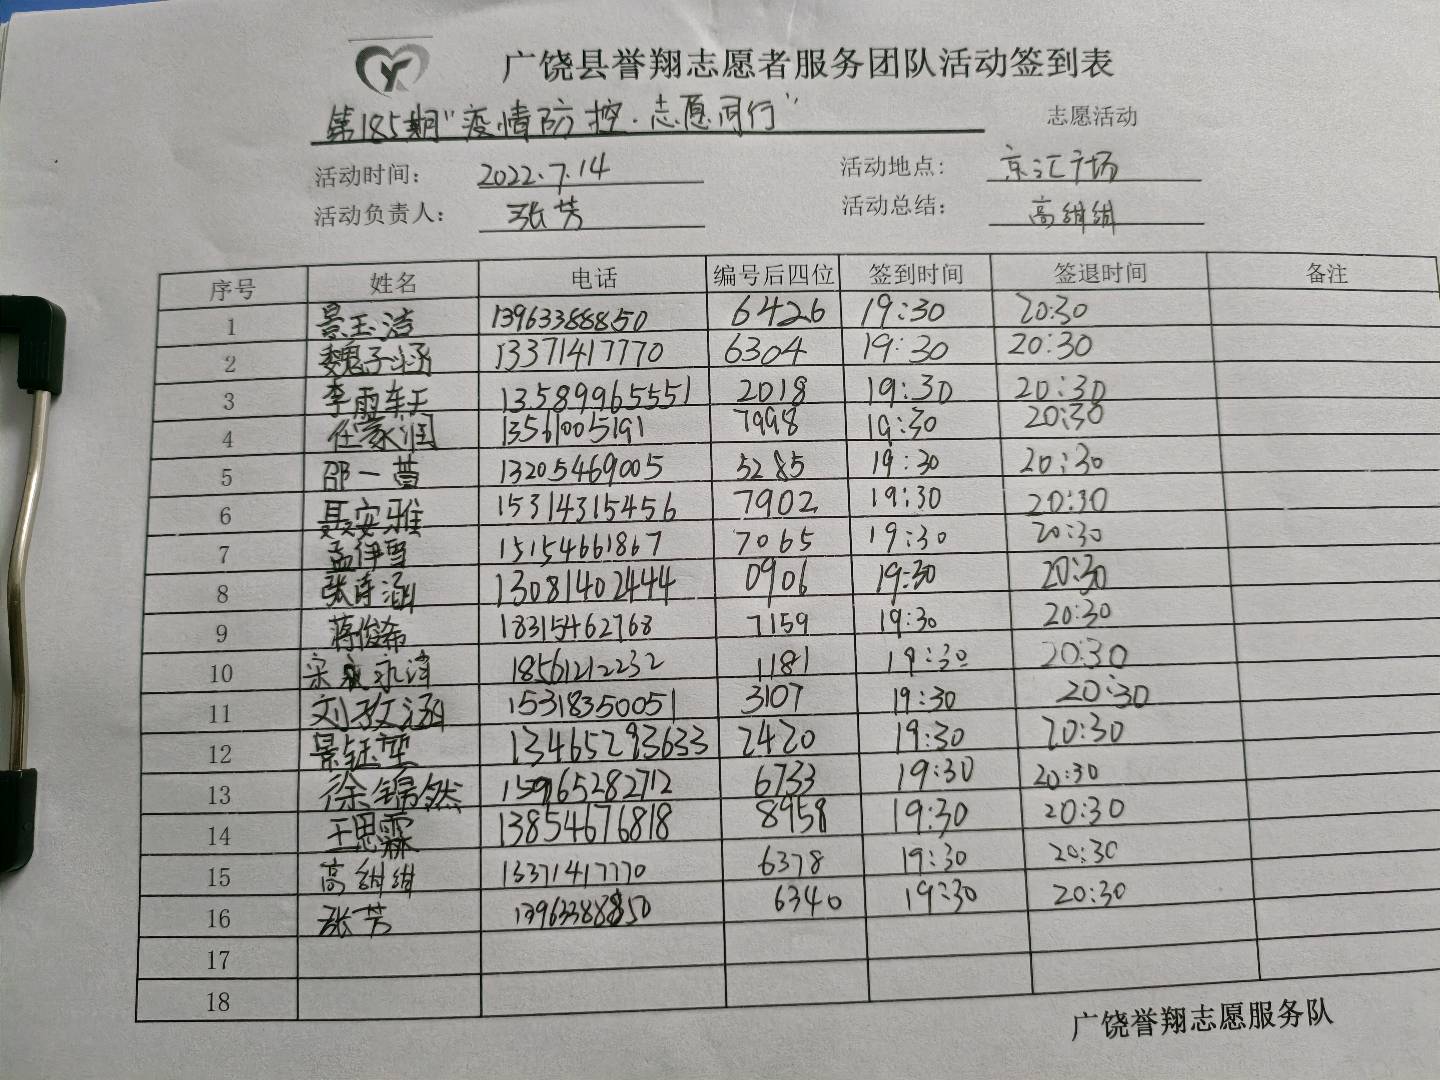 广饶县誉翔志愿者服务团队活动签到表
第185期"疫情防控·志愿同行" 志愿活动
活动时间: 2022.7.14 活动地点: 京汇广场
活动负责人: 张芳 活动总结: 高绀绀
序号 姓名 电话 编号后四位 签到时间 签退时间 备注
1 景玉洁 13963388850 6426 19:30 20:30
2 魏子涵 13371417770 6304 19:30 20:30
3 李雨轩 13589965551 2018 19:30 20:30
4 任家润 13561005191 7998 19:30 20:30
5 邵一萱 13205469005 5285 19:30 20:30
6 聂安雅 15314315456 7902 19:30 20:30
7 孟伊雪 15154661867 7065 19:30 20:30
8 张诗涵 13081402444 0906 19:30 20:30
9 蒋俊希 18315462768 7159 19:30 20:30
10 宋永涛 18561212232 1181 19:30 20:30
11 刘孜涵 15318350051 3107 19:30 20:30
12 景钰 13465293633 2420 19:30 20:30
13 徐锦然 15965282712 6733 19:30 20:30
14 王思霖 13854676818 8958 19:30 20:30
15 高绀绀 13371417770 6378 19:30 20:30
16 张芳 13963388850 6340 19:30 20:30
17
18
广饶誉翔志愿服务队